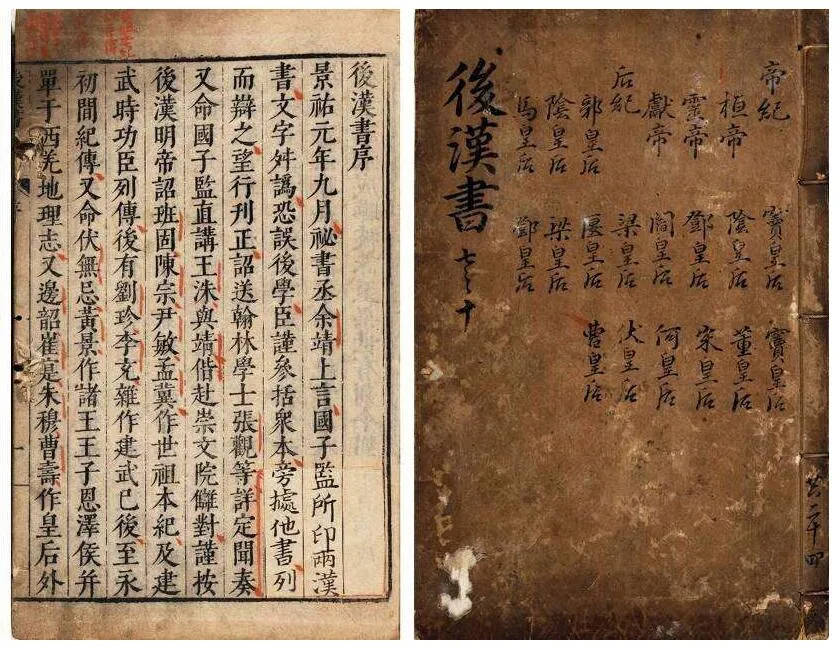 後漢書序
景祐元年九月祕書丞余靖上言國子監所印兩漢
書文字舛譌恐誤後學臣謹參括眾本旁據他書列
而辯之望行刊正詔送翰林學士張觀等詳定聞奏
又命國子監直講王洙與靖偕赴崇文院讎對謹按
後漢明帝詔班固陳宗尹敏孟冀作世祖本紀及建
武時功臣列傳後有劉珍李充雜作建武已後至永
初間紀傳又命伏無忌黃景作諸王王子恩澤侯并
單于西羌地理志又邊韶崔寔朱穆曹壽作皇后外
帝紀
桓帝
靈帝
獻帝
后紀
郭皇后
陰皇后
馬皇后
竇皇后
陰皇后
鄧皇后
閻皇后
梁皇后
匽皇后
梁皇后
鄧皇后
竇皇后
董皇后
宋皇后
何皇后
伏皇后
曹皇后
後漢書 七之十
共二十四